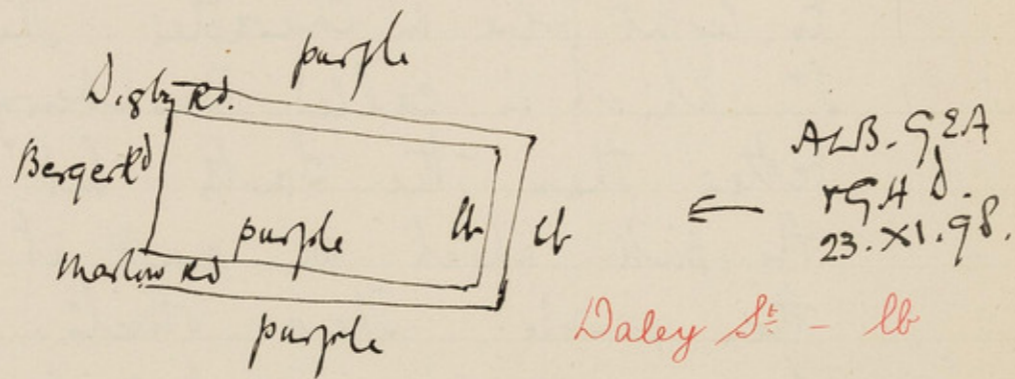 purple
Digby Rd.
Berger Rd
purple
lb
lb
Marlow Rd
purple
ALB. GEA
& GHD.
23. XI. 98.
Daley St - lb